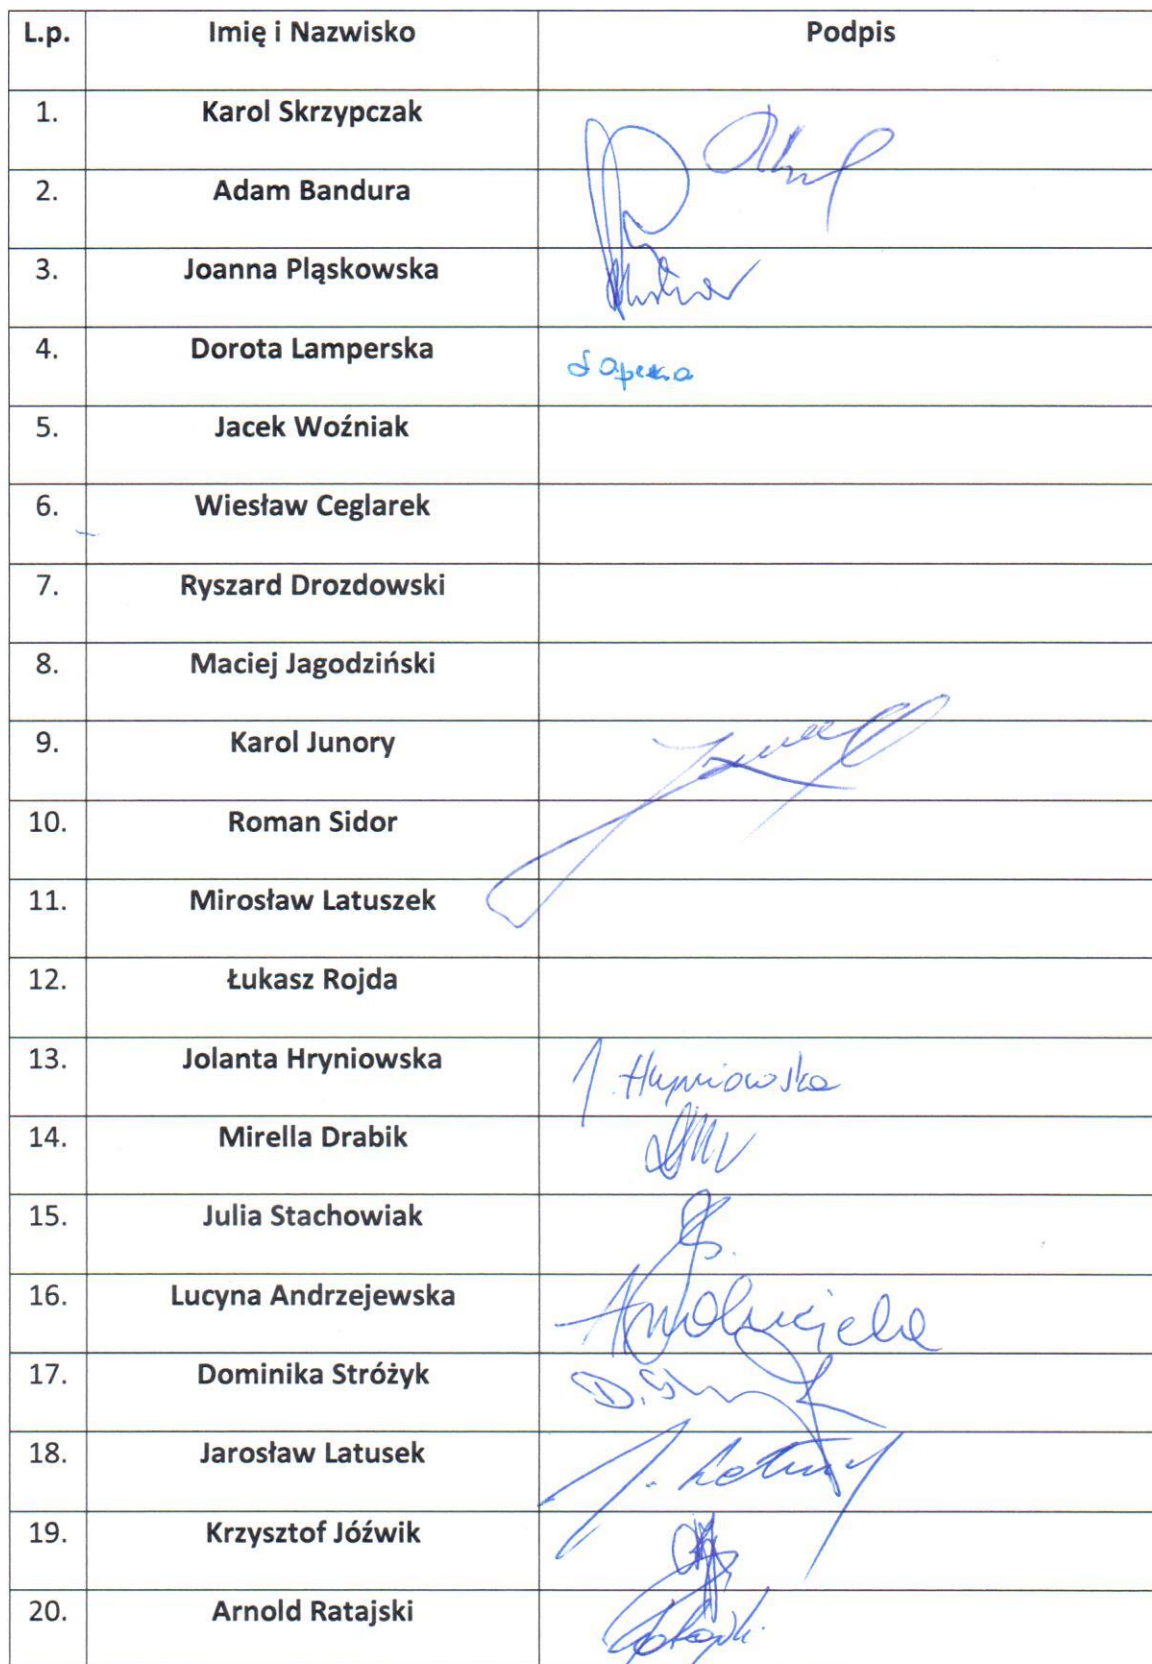 L.p. Imię i Nazwisko Podpis
1. Karol Skrzypczak
2. Adam Bandura
3. Joanna Pląskowska
4. Dorota Lamperska
5. Jacek Woźniak
6. Wiesław Ceglarek
7. Ryszard Drozdowski
8. Maciej Jagodziński
9. Karol Junory
10. Roman Sidor
11. Mirosław Latuszek
12. Łukasz Rojda
13. Jolanta Hryniowska J. Hryniowska
14. Mirella Drabik
15. Julia Stachowiak
16. Lucyna Andrzejewska
17. Dominika Stróżyk
18. Jarosław Latusek
19. Krzysztof Jóźwik
20. Arnold Ratajski